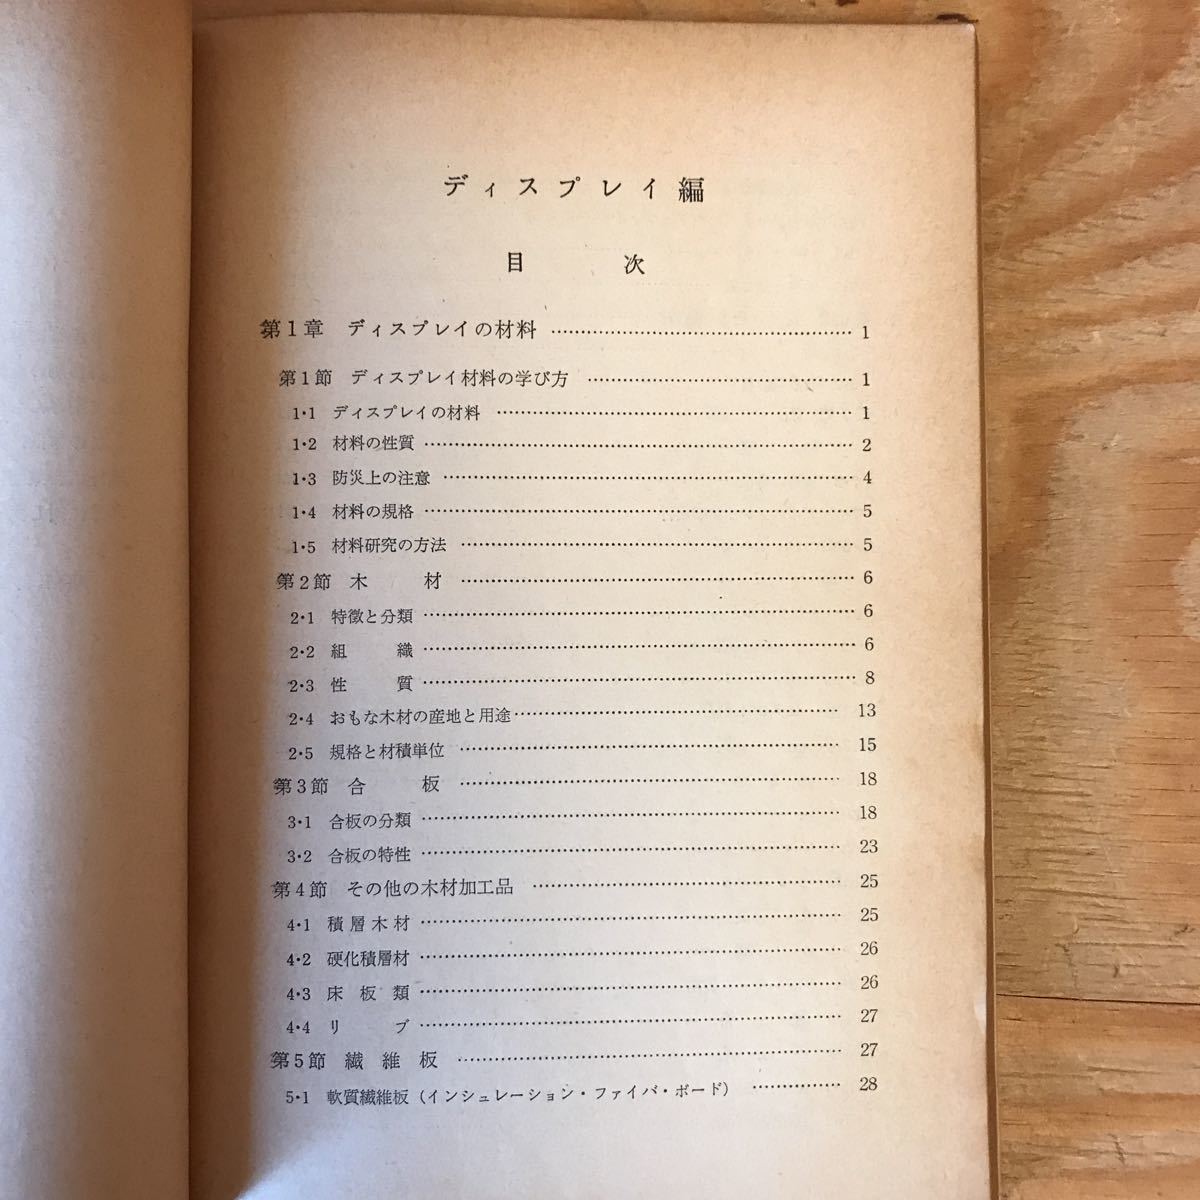 ディスプレイ編
目次
第1章 ディスプレイの材料 …… 1
第1節 ディスプレイ材料の学び方 …… 1
1・1 ディスプレイの材料 …… 1
1・2 材料の性質 …… 2
1・3 防災上の注意 …… 4
1・4 材料の規格 …… 5
1・5 材料研究の方法 …… 5
第2節 木材 …… 6
2・1 特徴と分類 …… 6
2・2 組織 …… 6
2・3 性質 …… 8
2・4 おもな木材の産地と用途 …… 13
2・5 規格と材積単位 …… 15
第3節 合板 …… 18
3・1 合板の分類 …… 18
3・2 合板の特性 …… 23
第4節 その他の木材加工品 …… 25
4・1 積層木材 …… 25
4・2 硬化積層材 …… 26
4・3 床板類 …… 26
4・4 リブ …… 27
第5節 繊維板 …… 27
5・1 軟質繊維板（インシュレーション・ファイバ・ボード） …… 28